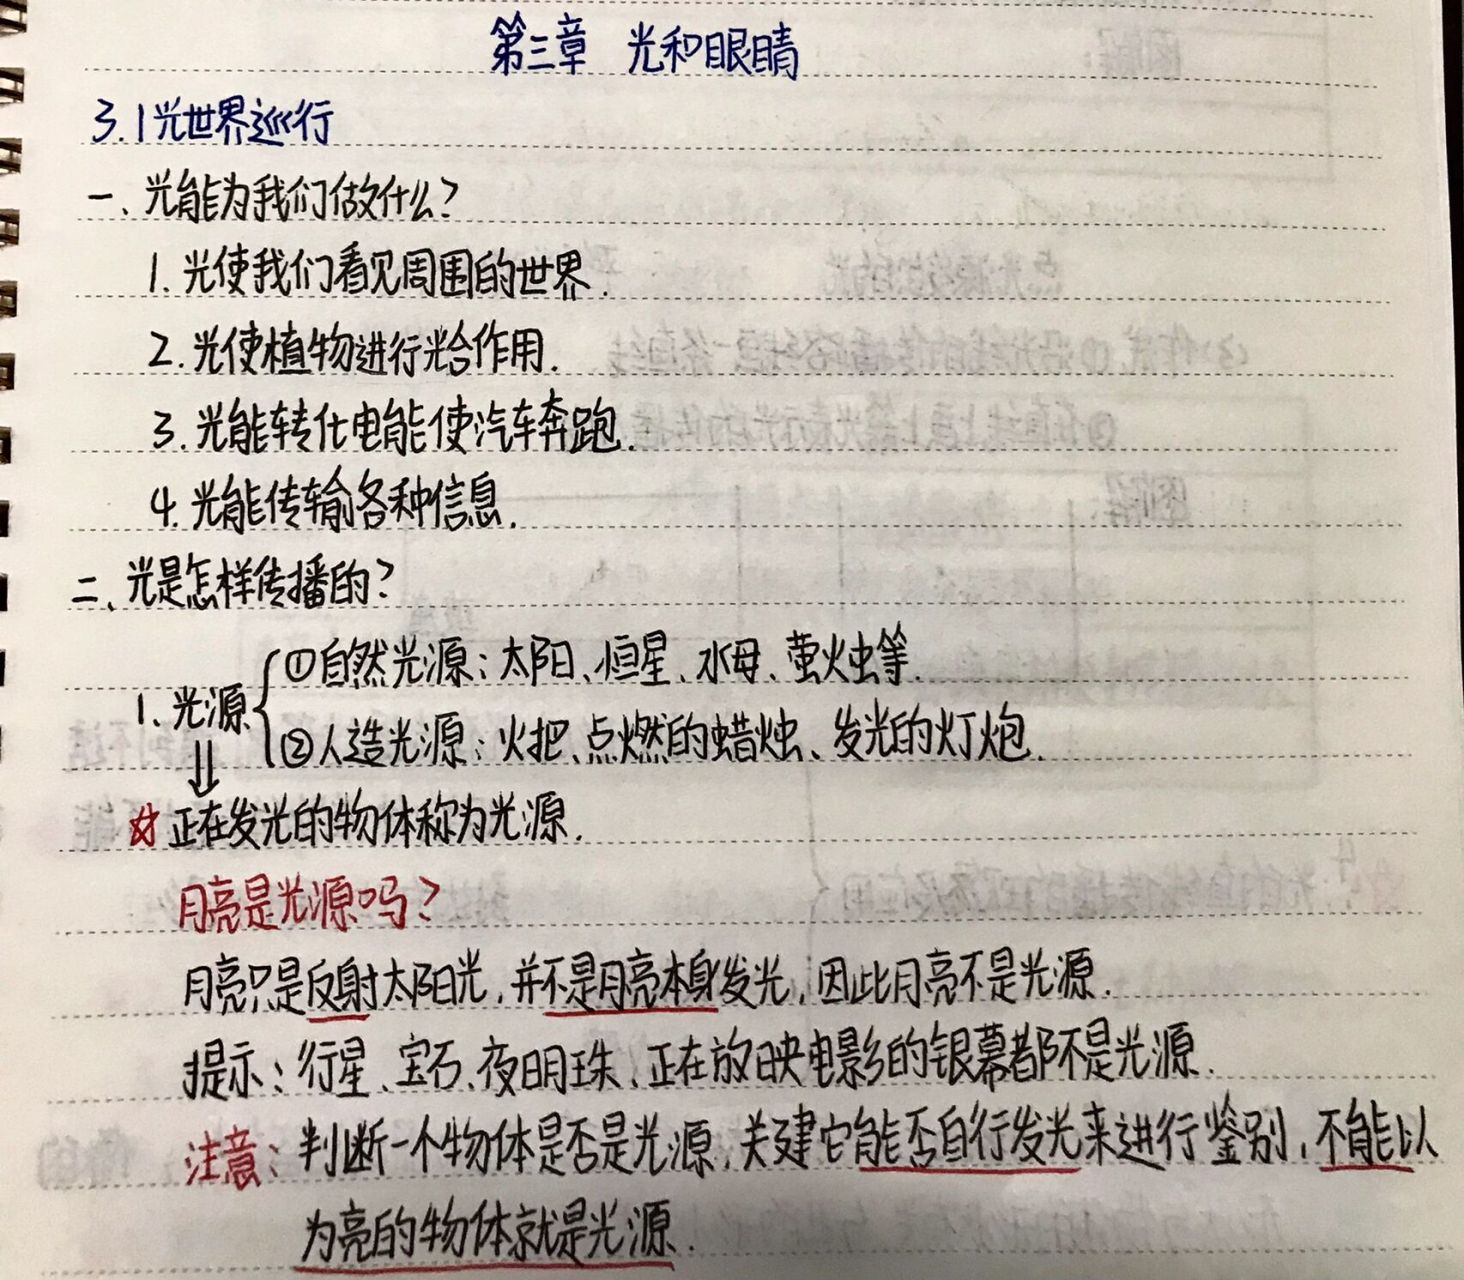 第三章 光和眼睛
3.1光世界巡行
一、光能为我们做什么?
1.光使我们看见周围的世界.
2.光使植物进行光合作用.
3.光能转化电能使汽车奔跑.
4.光能传输各种信息.
二、光是怎样传播的?
1、光源
①自然光源:太阳、恒星、水母、萤火虫等.
②人造光源:火把、点燃的蜡烛、发光的灯炮.
⇓
☆正在发光的物体称为光源.
月亮是光源吗?
月亮只是反射太阳光,并不是月亮本身发光,因此月亮不是光源.
提示:行星、宝石、夜明珠、正在放映电影的银幕都不是光源.
注意:判断一个物体是否是光源,关建它能否自行发光来进行鉴别,不能以
为亮的物体就是光源.